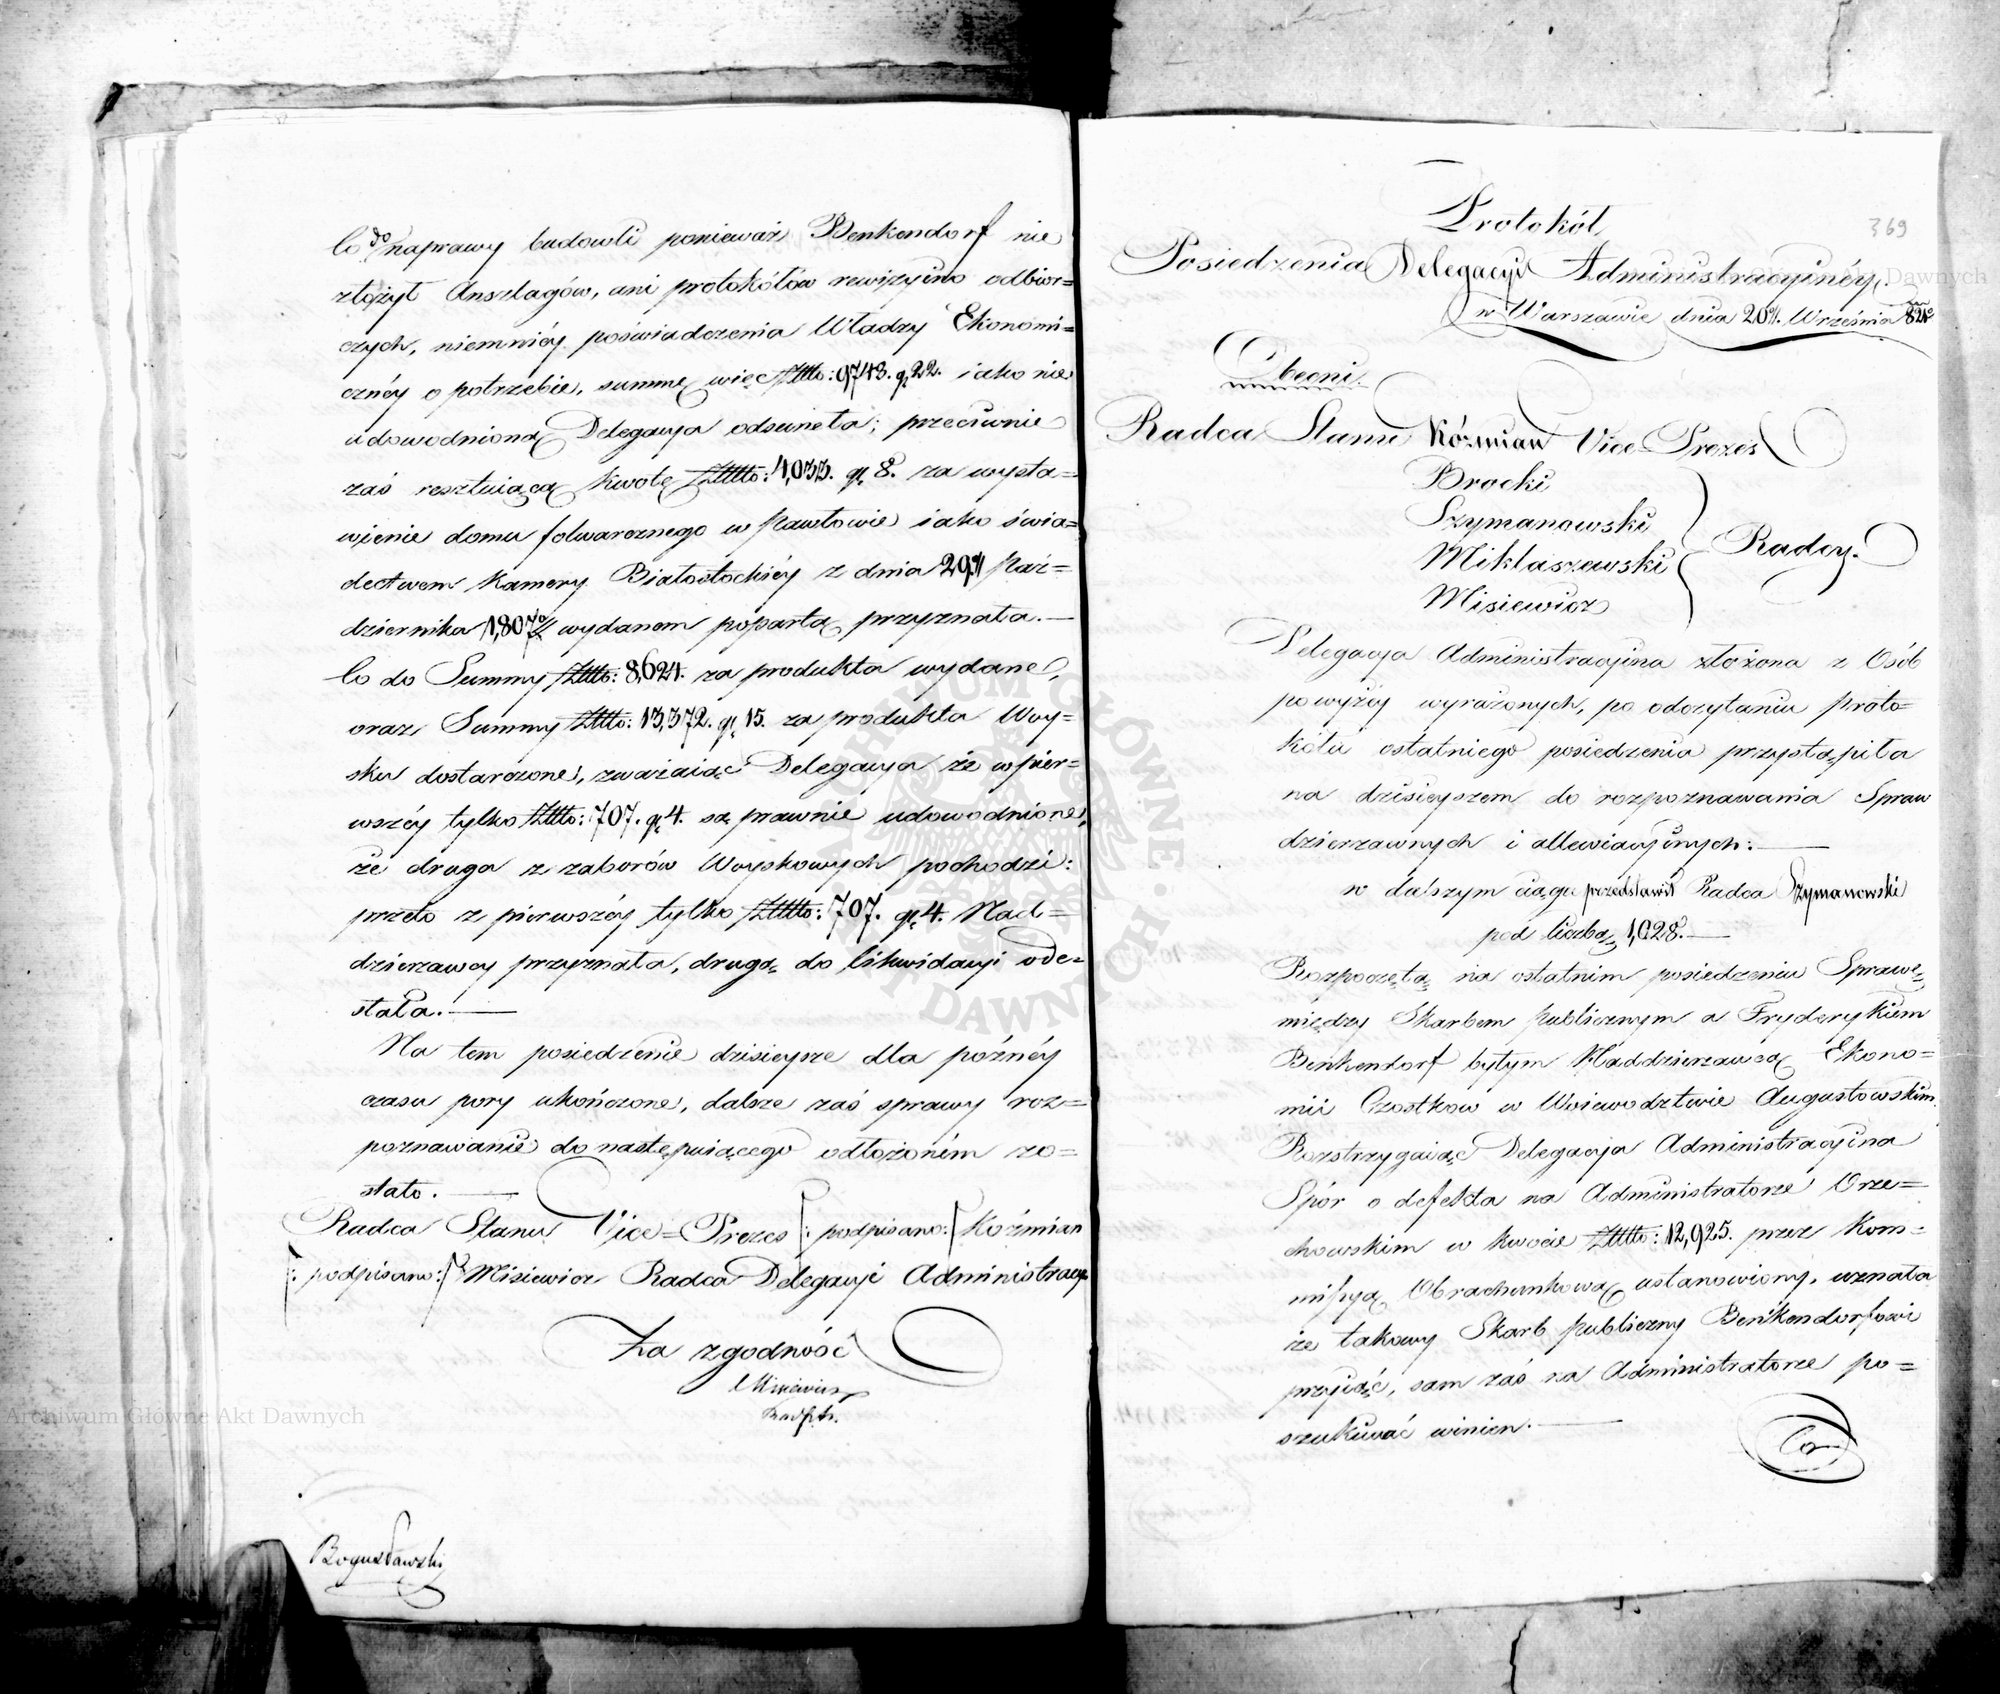 Co do naprawy budowli ponieważ Benkendorf nie
złożył Anszlagów, ani protokółów rewizyino odbior=
czych, niemniéy poświadczenia Władzy Ekonomi=
cznéy o potrzebie, summę więc Złłło: 9748. gr 22. iako nie
udowodnioną Delegacya odsunęła; przeciwnie
zaś resztuiącą kwotę Złłło: 4,033. gr 8. za wysta=
wienie domu folwarcznego w Pawłowie iako świa=
dectwem Kamery Białostockiéy z dnia 29. Paź=
dziernika 1,807 wydanem popartą przyznała.—
Co do Summy Złłło: 8,624. za produkta wydane,
oraz Summy Złłło: 13,372. gr 15. za produkta Woy=
sku dostarczone, zważaiąc Delegacya że w pier=
wszéy tylko Złłło: 707. gr 4. są prawnie udowodnione,
że druga z zaborów Woyskowych pochodzi:
przeto z pierwszéy tylko Złłło: 707. gr 4. Nad=
dzierżawcy przyznała, drugą do likwidacyi ode=
słała.—
Na tem posiedzenie dzisieysze dla poźnéy
czasu pory ukończone, dalsze zaś sprawy roz=
poznawanie do następuiącego odłożoném zo=
stało.—
Radca Stanu Vice=Prezes /: podpisano:/ Koźmian
/: podpisano:/ Misiewicz Radca Delegacyi Administracy
Za zgodność
Misiewicz
Bogusławski
369
Protokół
Posiedzenia Delegacyi Administracyinéy.
w Warszawie dnia 20. Września 82
Obecni.
Radca Stanu Koźmian Vice Prezes
Brocki
Szymanowski
Miklaszewski
Misiewicz
Radcy.
Delegacya Administracyina złożona z Osób
powyżéy wyrażonych, po odczytaniu proto=
kółu ostatniego posiedzenia przystąpiła
na dzisieyszem do rozpoznawania Spraw
dzierżawnych i allewiacyinych:—
w dalszym ciągu przedstawił Radca Szymanowski
pod liczbą 1,028.—
Rozpoczętą na ostatnim posiedzeniu Sprawę
między Skarbem publicznym a Fryderykiem
Benkendorf byłym Naddzierżawcą Ekono=
mii Czostkow w Woiewodztwie Augustowskim
Rozstrzygaiąc Delegacya Administracyina
Spór o defekta na Administratorze Orze=
chowskim w kwocie Złłło: 12,925. przez Kom=
missyą Obrachunkową ustanowiony, uznała
że takowy Skarb publiczny Benkendorfowi
przyiąć, sam zaś na Administratorze po=
szukiwać winien.—
Co
Archiwum Główne Akt Dawnych
ARCHIWUM GŁÓWNE AKT DAWNYCH